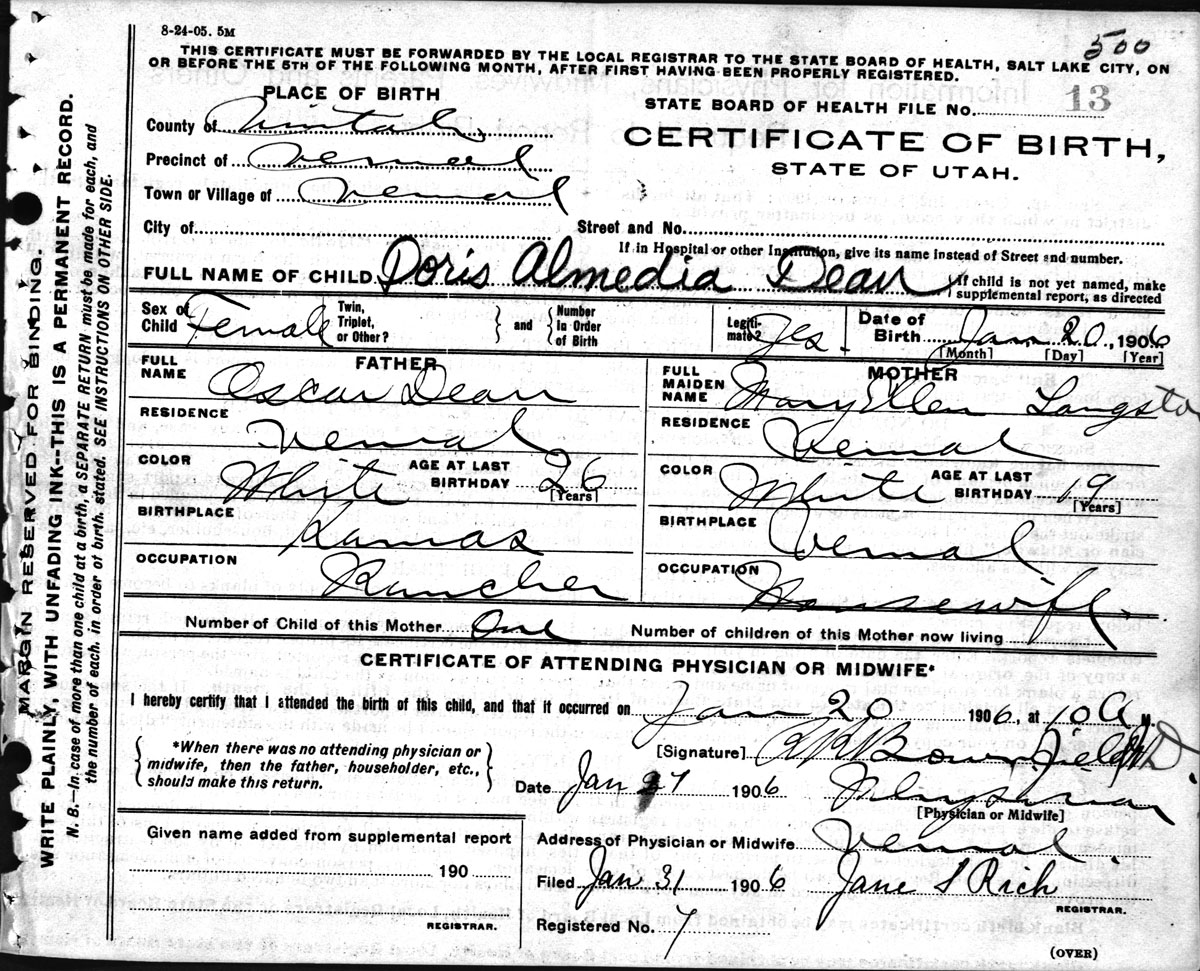 8-24-05. 5M
500
THIS CERTIFICATE MUST BE FORWARDED BY THE LOCAL REGISTRAR TO THE STATE BOARD OF HEALTH, SALT LAKE CITY, ON
OR BEFORE THE 5TH OF THE FOLLOWING MONTH, AFTER FIRST HAVING BEEN PROPERLY REGISTERED.
PLACE OF BIRTH
STATE BOARD OF HEALTH FILE No. 13
County of Uintah
CERTIFICATE OF BIRTH,
Precinct of Vernal
STATE OF UTAH.
Town or Village of Vernal
City of
Street and No.
If in Hospital or other Institution, give its name instead of Street and number.
FULL NAME OF CHILD Doris Almedia Dean
If child is not yet named, make
supplemental report, as directed
Sex of Child Female Twin, Triplet, or Other? and Number In Order of Birth Legiti-mate? Yes. Date of Birth Jan 20, 1906
[Month] [Day] [Year]
FATHER
MOTHER
FULL NAME Oscar Dean
FULL MAIDEN NAME Mary Ellen Langsto
RESIDENCE Vernal
RESIDENCE Vernal
COLOR White AGE AT LAST BIRTHDAY 26 [Years]
COLOR White AGE AT LAST BIRTHDAY 19 [Years]
BIRTHPLACE Kamas
BIRTHPLACE Vernal
OCCUPATION Rancher
OCCUPATION Housewife.
Number of Child of this Mother One Number of children of this Mother now living
CERTIFICATE OF ATTENDING PHYSICIAN OR MIDWIFE*
I hereby certify that I attended the birth of this child, and that it occurred on Jan 20 1906, at 10 A M.
*When there was no attending physician or
midwife, then the father, householder, etc.,
should make this return.
[Signature]
Date Jan 27 1906 Physician
[Physician or Midwife]
Given name added from supplemental report
190
REGISTRAR.
Address of Physician or Midwife Vernal.
Filed Jan 31 1906 Jane S Rich
REGISTRAR.
Registered No. 7
(OVER)
MARGIN RESERVED FOR BINDING.
WRITE PLAINLY, WITH UNFADING INK--THIS IS A PERMANENT RECORD.
N. B.—In case of more than one child at a birth, a SEPARATE RETURN must be made for each, and
the number of each, in order of birth, stated. SEE INSTRUCTIONS ON OTHER SIDE.